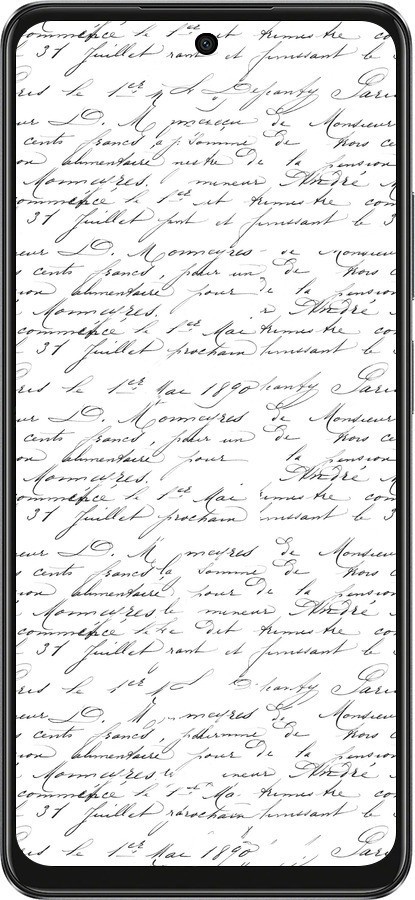 commence le 1er et trimestre co
31 Juillet rant et finissant le
Paris le 1er Depanty Paris
eur D. M de Monsieur
cents francs, la somme de trois ce
on alimentaire nestre de la pension
Monnayres. mineur André M
commence le 1er et trimestre com
31 Juillet et finissant le 3
eur D. Monnayres de Monsieur
s cents francs, pour un de trois c
ion alimentaire pour de la pension
Monnayres. André
commence le 1er Mai trimestre co
31 Juillet prochain finissant le
ris le 1er Mai 1890 panty Paris
eur D. Monnayres de Monsieur
cents francs, pour un de trois ce
on alimentaire pour la pension
Monnayres. André M
commence le 1er Mai trimestre com
31 Juillet prochain finissant le 3
eur D. M nayres de Monsieur
s cents francs la somme de trois c
ion alimentaire pour de la pension
Monnayres le mineur André
commence le dit trimestre co
31 Juillet rant et finissant le
ris le 1er panty Paris
eur D. M nayres de Monsieur
s cents francs, de trois c
ion alimentaire pour de la pension
Monnayres le ineur André
commence le 1er Ma trimestre co
31 Juillet finissant le
Paris le 1er Mai 1890 Paris